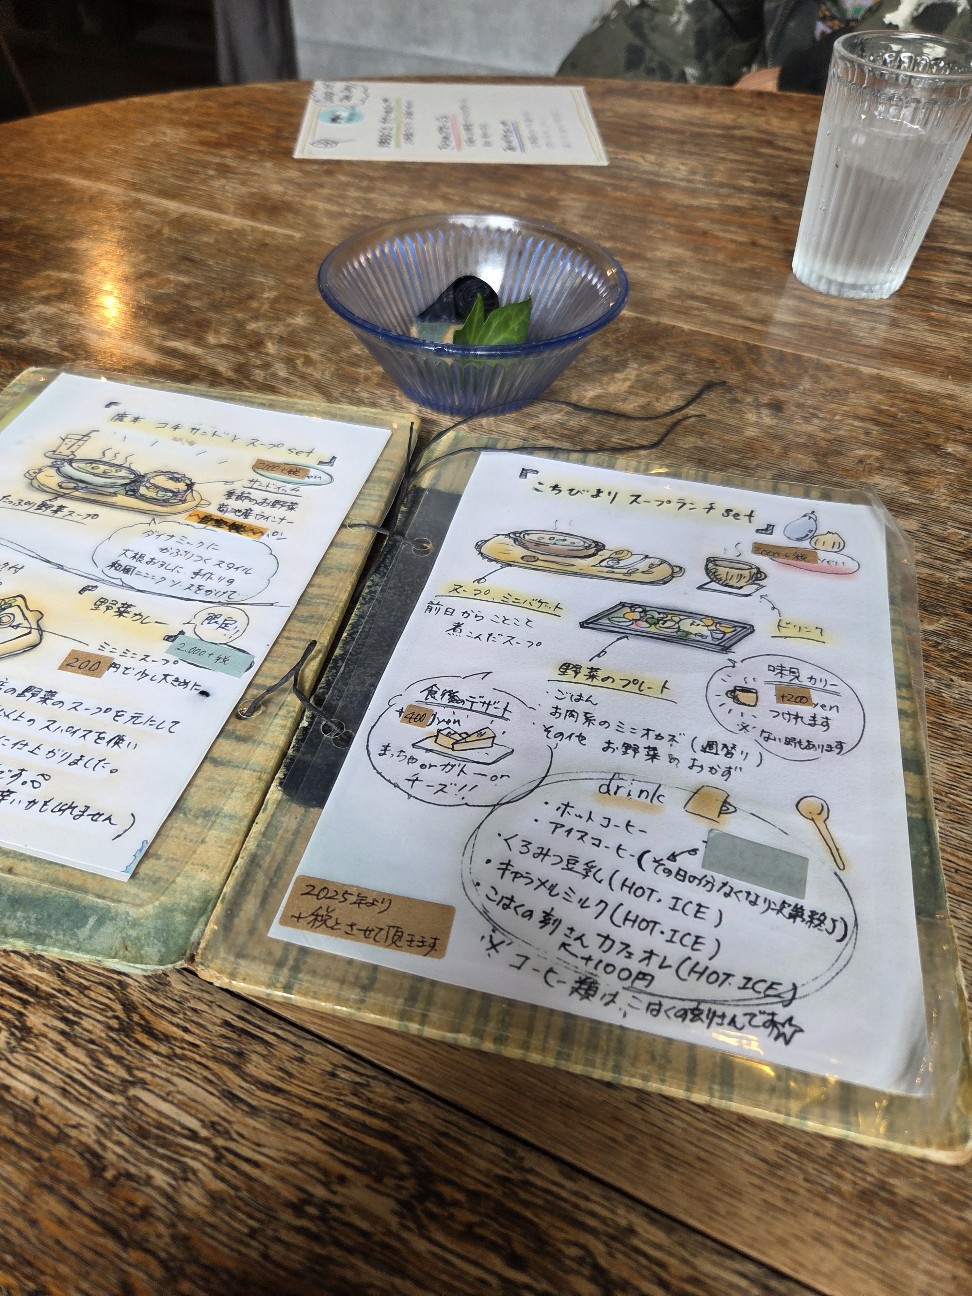 コチサンドとスープset
2,000+税 yen
サンドイッチ
季節のお野菜
菊池産ウインナー
たっぷり野菜スープ
ダイナミックに
がぶりつくスタイル
大根おろしと手作りの
和風ニンニクソースをかけて
『野菜カレー
限定!
2,000+税
ミニミニスープ
200円で少し大きめに
の野菜のスープを元にして
以上のスパイスを使い
に仕上がりました。
です。
辛いかもしれません)
『こちびより スープランチset』
2000+税 yen
スープ、ミニバケット
前日からことこと
煮こんだスープ
ドリンク
野菜のプレート
・ごはん
お肉系のミニオカズ(週替り)
その他 お野菜のおかず
味見カリー
+200yen
つけれます
※ない時もあります
食後のデザート
+400yen
まっちゃorガトーor
チーズ!!
drink
・ホットコーヒー
・アイスコーヒー(その日の分なくなり次第終了)
・くろみつ豆乳(HOT.ICE)
・キャラメルミルク(HOT.ICE)
・こはくの刻さんカフェオレ(HOT.ICE)
+100円
※コーヒー類は、こはくの刻さんです☆
2025年より
+税とさせて頂きます